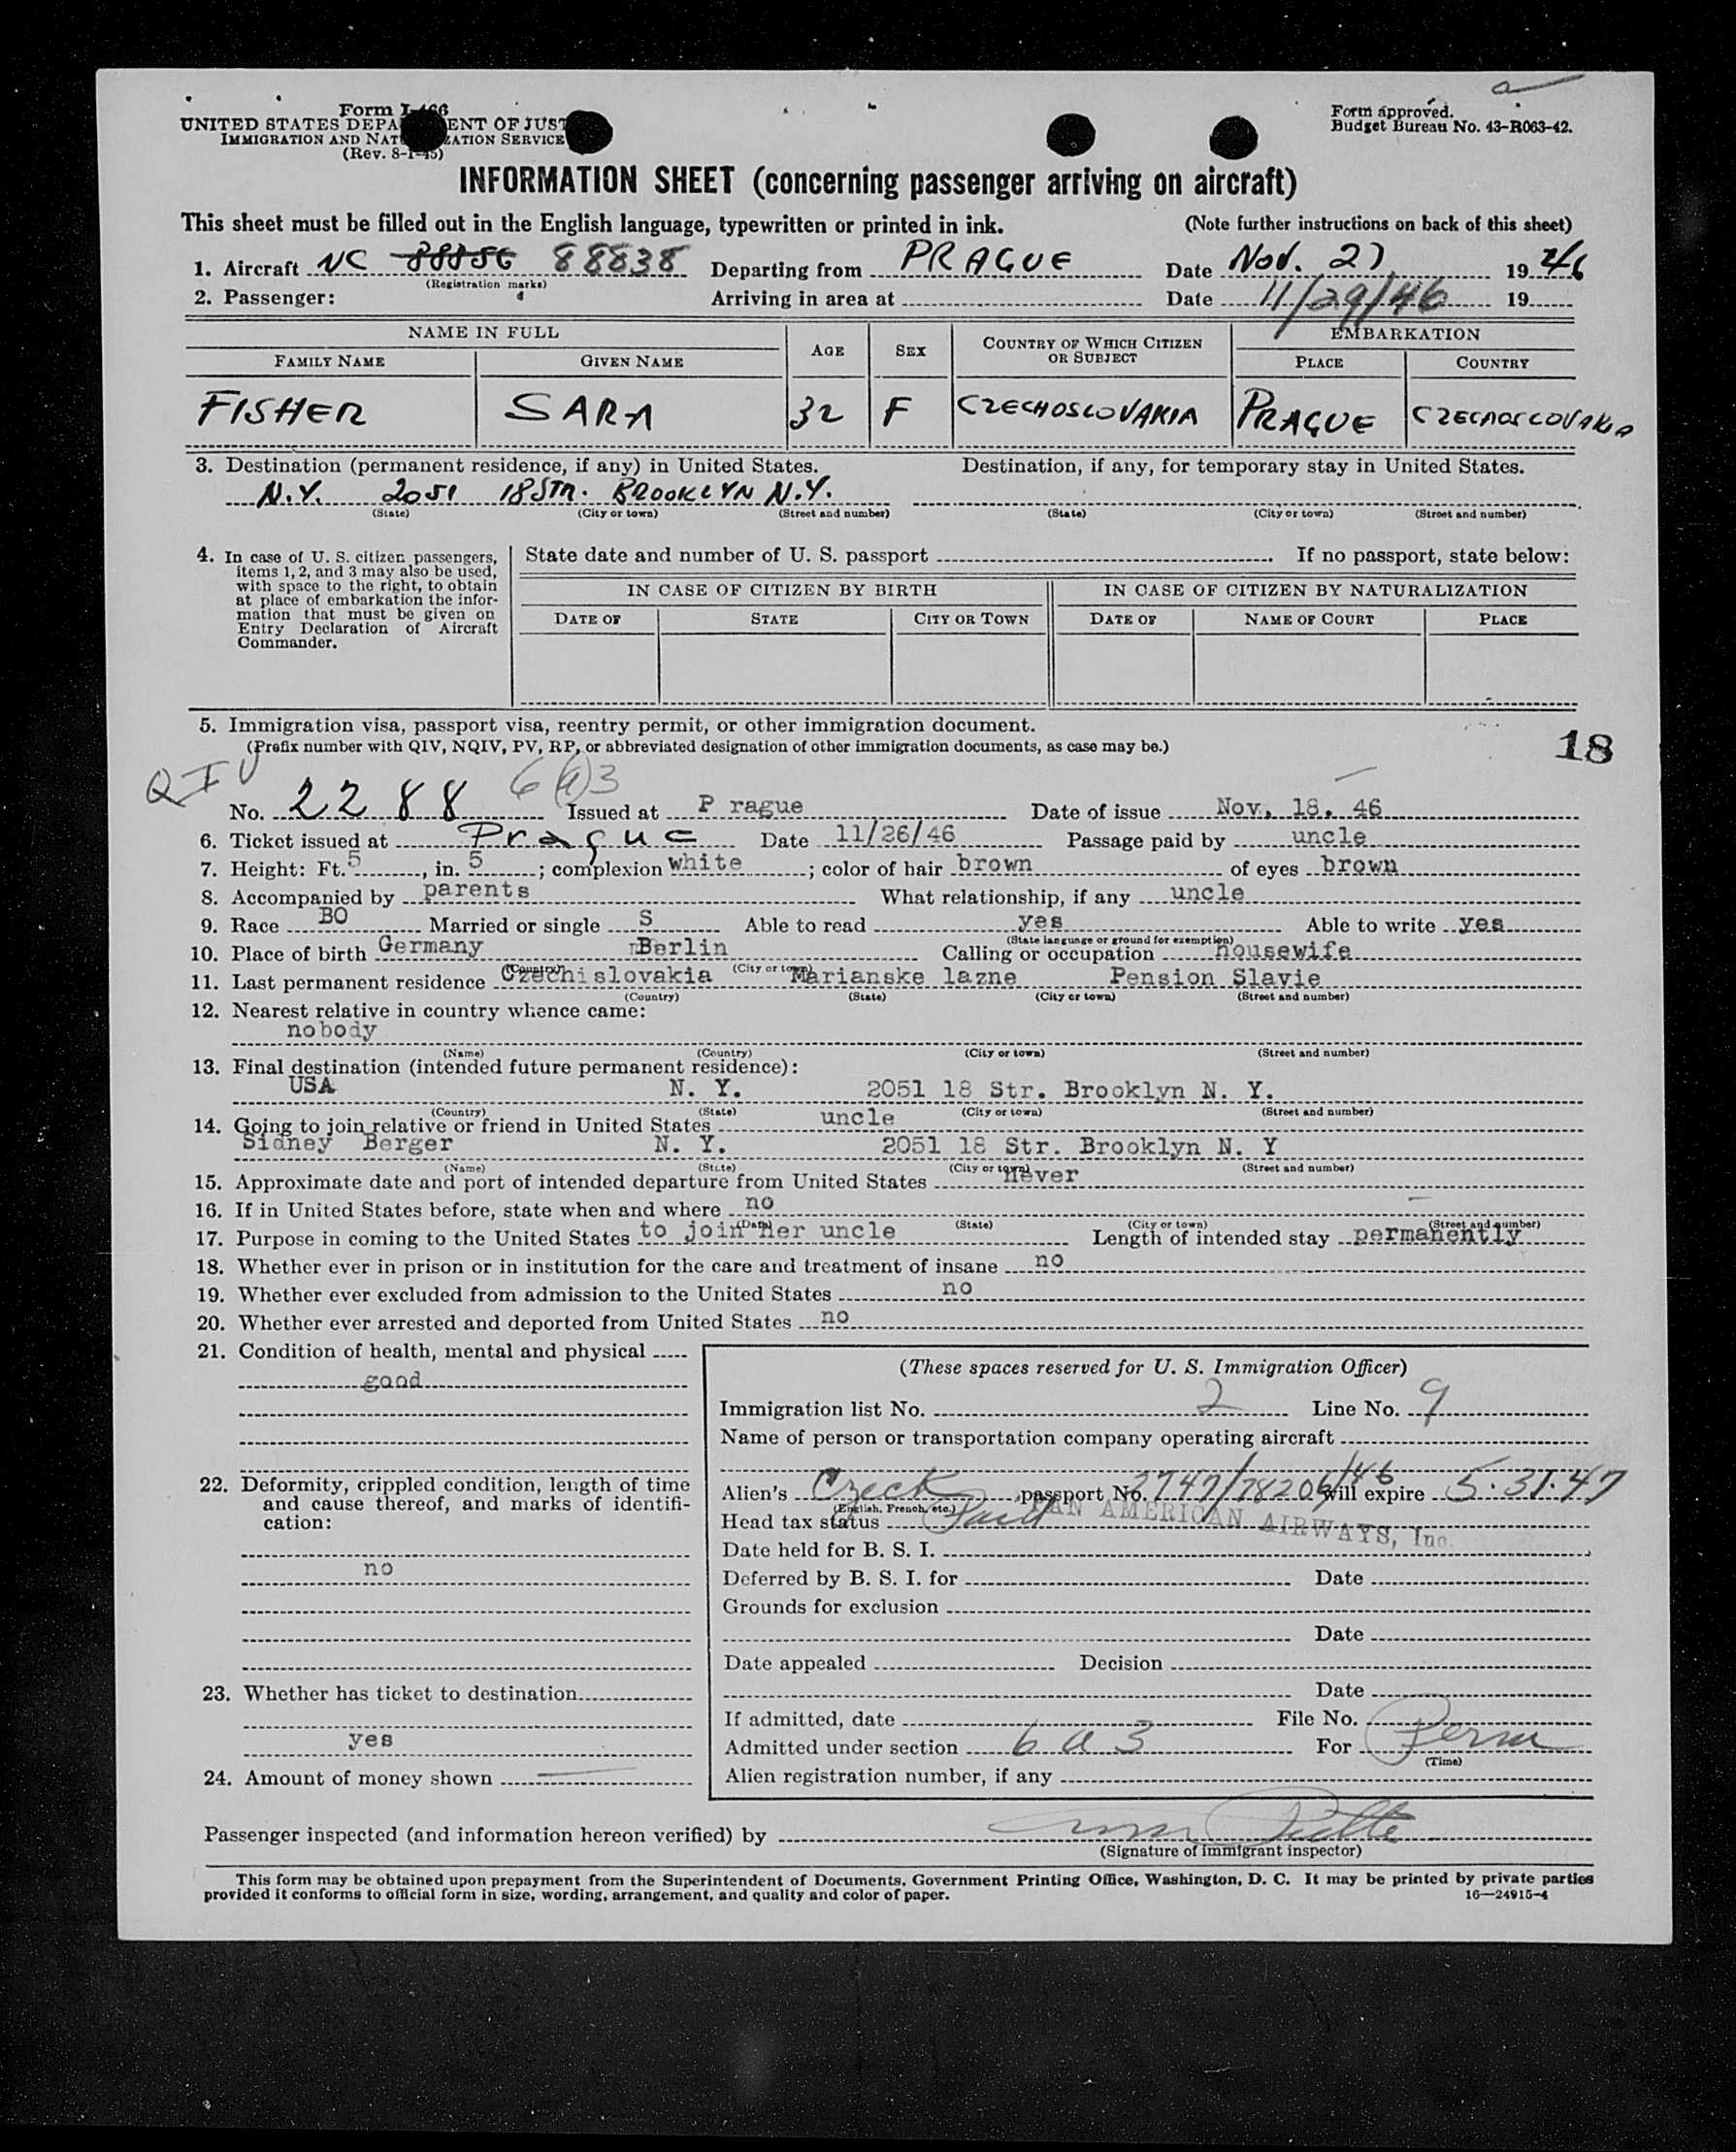 a
Form I-466
UNITED STATES DEPA ENT OF JUST
IMMIGRATION AND NAT ZATION SERVICE
(Rev. 8-1-45)
Form approved.
Budget Bureau No. 43-R063-42.
INFORMATION SHEET (concerning passenger arriving on aircraft)
This sheet must be filled out in the English language, typewritten or printed in ink. (Note further instructions on back of this sheet)
1. Aircraft NC 88838 Departing from PRAGUE Date Nov. 27 1946
(Registration marks)
2. Passenger: Arriving in area at Date 11/29/46 19
NAME IN FULL AGE SEX COUNTRY OF WHICH CITIZEN OR SUBJECT EMBARKATION
FAMILY NAME GIVEN NAME PLACE COUNTRY
FISHER SARA 32 F CZECHOSLOVAKIA PRAGUE CZECHOSLOVAKIA
3. Destination (permanent residence, if any) in United States. Destination, if any, for temporary stay in United States.
N.Y. 2051 18 STR. BROOKLYN N.Y.
(State) (City or town) (Street and number) (State) (City or town) (Street and number)
4. In case of U. S. citizen passengers,
items 1, 2, and 3 may also be used,
with space to the right, to obtain
at place of embarkation the infor-
mation that must be given on
Entry Declaration of Aircraft
Commander.
State date and number of U. S. passport . If no passport, state below:
IN CASE OF CITIZEN BY BIRTH IN CASE OF CITIZEN BY NATURALIZATION
DATE OF STATE CITY OR TOWN DATE OF NAME OF COURT PLACE
5. Immigration visa, passport visa, reentry permit, or other immigration document.
(Prefix number with QIV, NQIV, PV, RP, or abbreviated designation of other immigration documents, as case may be.)
18
QIV 6(a)3
No. 2288 Issued at P rague Date of issue Nov. 18. 46
6. Ticket issued at Prague Date 11/26/46 Passage paid by uncle
7. Height: Ft. 5, in. 5; complexion white; color of hair brown of eyes brown
8. Accompanied by parents What relationship, if any uncle
9. Race BO Married or single S Able to read yes Able to write yes
(State language or ground for exemption)
10. Place of birth Germany Berlin Calling or occupation housewife
(Country) (City or town)
11. Last permanent residence Czechislovakia Marianske lazne Pension Slavie
(Country) (State) (City or town) (Street and number)
12. Nearest relative in country whence came:
nobody
(Name) (Country) (City or town) (Street and number)
13. Final destination (intended future permanent residence):
USA N. Y. 2051 18 Str. Brooklyn N. Y.
(Country) (State) (City or town) (Street and number)
14. Going to join relative or friend in United States uncle
Sidney Berger N. Y. 2051 18 Str. Brooklyn N. Y
(Name) (State) (City or town) (Street and number)
15. Approximate date and port of intended departure from United States never
16. If in United States before, state when and where no
(Date) (State) (City or town) (Street and number)
17. Purpose in coming to the United States to join her uncle Length of intended stay permanently
18. Whether ever in prison or in institution for the care and treatment of insane no
19. Whether ever excluded from admission to the United States no
20. Whether ever arrested and deported from United States no
21. Condition of health, mental and physical
good
22. Deformity, crippled condition, length of time
and cause thereof, and marks of identifi-
cation:
no
23. Whether has ticket to destination
yes
24. Amount of money shown —
(These spaces reserved for U. S. Immigration Officer)
Immigration list No. 2 Line No. 9
Name of person or transportation company operating aircraft
PAN AMERICAN AIRWAYS, Inc.
Alien's Czech passport No. 2747/78206/46 will expire 5.31.47
(English, French, etc.)
Head tax status Paid
Date held for B. S. I.
Deferred by B. S. I. for Date
Grounds for exclusion
Date
Date appealed Decision
Date
If admitted, date File No.
Admitted under section 6 a 3 For Perm
(Time)
Alien registration number, if any
Passenger inspected (and information hereon verified) by
(Signature of immigrant inspector)
This form may be obtained upon prepayment from the Superintendent of Documents, Government Printing Office, Washington, D. C. It may be printed by private parties
provided it conforms to official form in size, wording, arrangement, and quality and color of paper. 16—24915-4